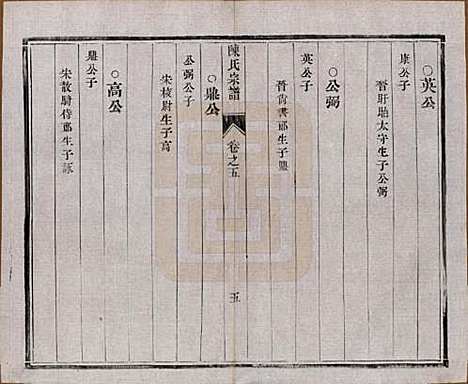 ○英公
康公子
晉盱眙太守生子公弼
○公弼
英公子
晉尚書郎生子鼎
陳氏宗譜
卷之五
五
○鼎公
公弼公子
宋校尉生子高
○高公
鼎公子
宋散尉侍郎生子詠